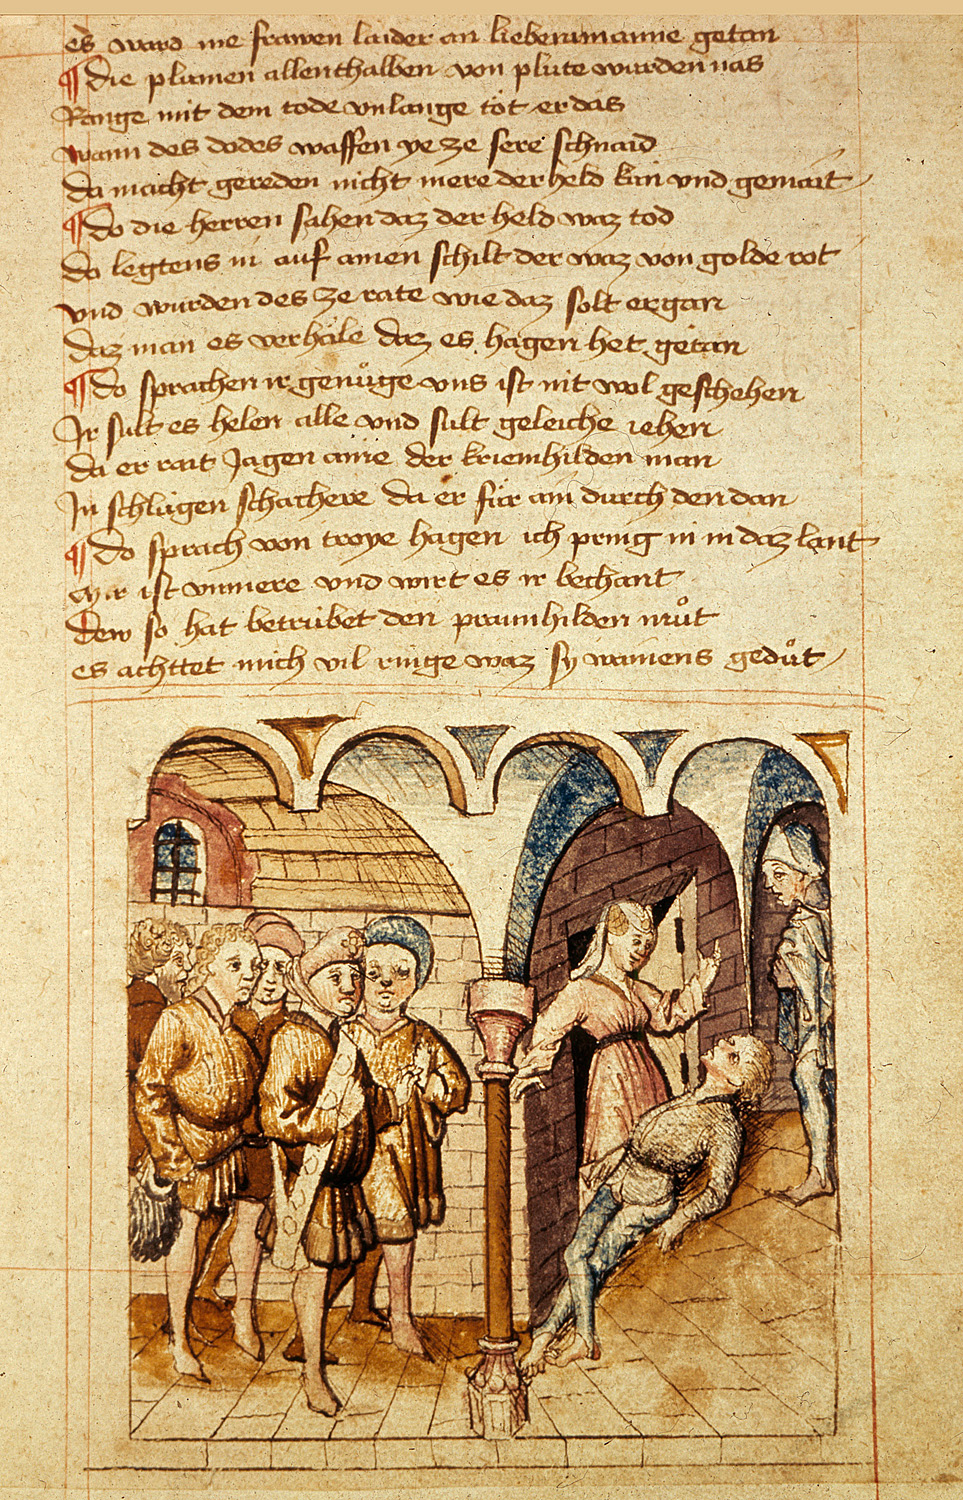 es ward nie frawen laider an liebem manne getan
¶ Die plumen allenthalben von plute wurden nas
Range mit dem tode vnlange tot er das
wann des dodes waffen ye ze sere schnaid
da macht gereden nicht mere der held kün vnd gemait
¶ Do die herren sahen daz der held waz tod
Do legtens in auf ainen schilt der waz von golde rot
vnd wurden des ze rate wie daz solt ergan
Daz man es verhäle daz es hagen het getan
¶ Do sprachen ir genůge vns ist nit wol geschehen
Ir sült es helen alle vnd sült geleiche iehen
Da er rait Jagen aine der kriemhilden man
In schlügen schachere da er für ain durch den dan
¶ Do sprach von troye hagen ich pring in in daz lant
Mir ist vnmere vnd wirt es ir bechant
Dew so hat betrübet den praunhilden můt
es achttet mich vil ringe waz sy wainens gedůt